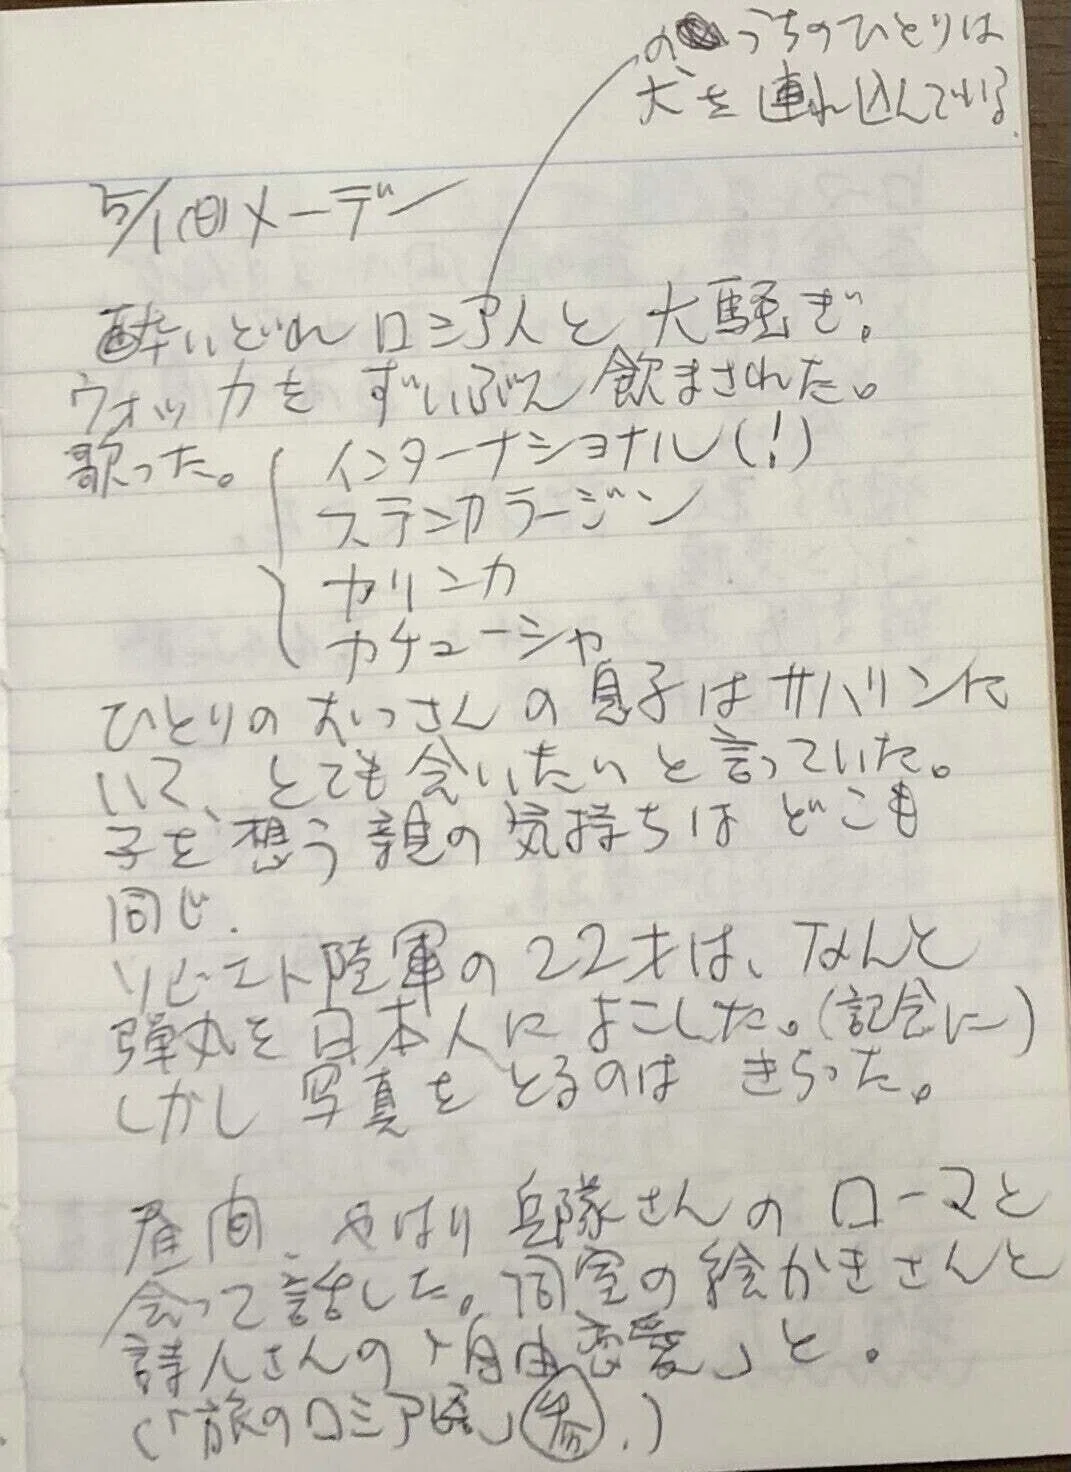 のうちのひとりは
犬を連れ込んでいる.
5/1(日)メーデー
酔いどれロシア人と大騒ぎ。
ウォッカをずいぶん飲まされた。
歌った。 インターナショナル(!)
ステンカラージン
カリンカ
カチューシャ
ひとりのおっさんの息子はサハリンに
いて、とても会いたいと言っていた。
子を想う親の気持ちはどこも
同じ.
ソビエト陸軍の22才は、なんと
弾丸を日本人によこした。(記念に)
しかし写真をとるのはきらった。
昼間、やはり兵隊さんのローマと
会って話した。同室の絵かきさんと
詩人さんの「自由恋愛」と。
(「旅のロシア語」.)